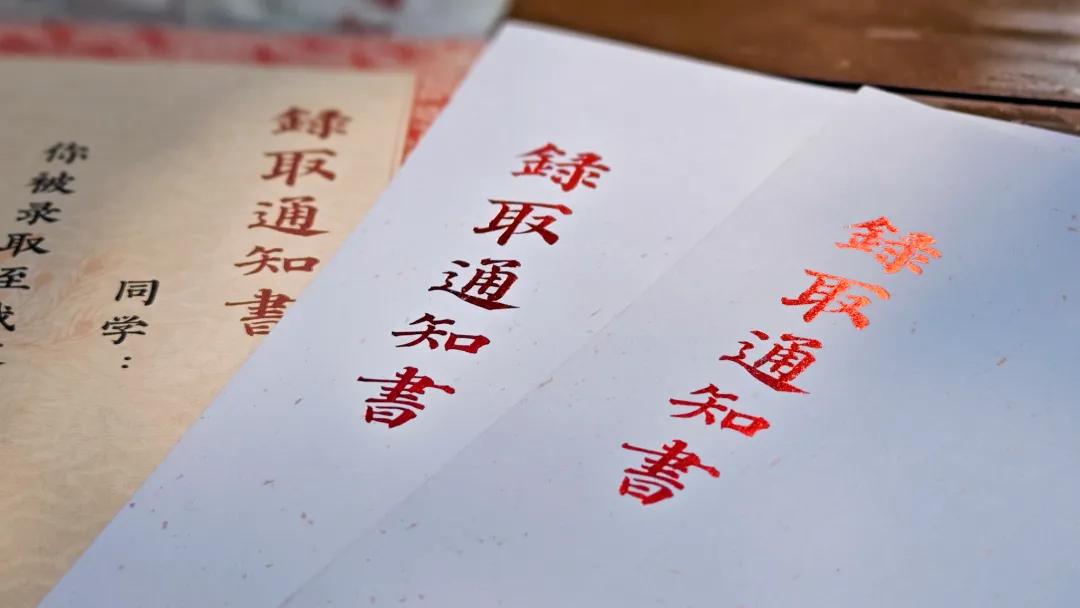 錄取通知書
錄取通知書
錄取通知書
同学：
你被录取至我